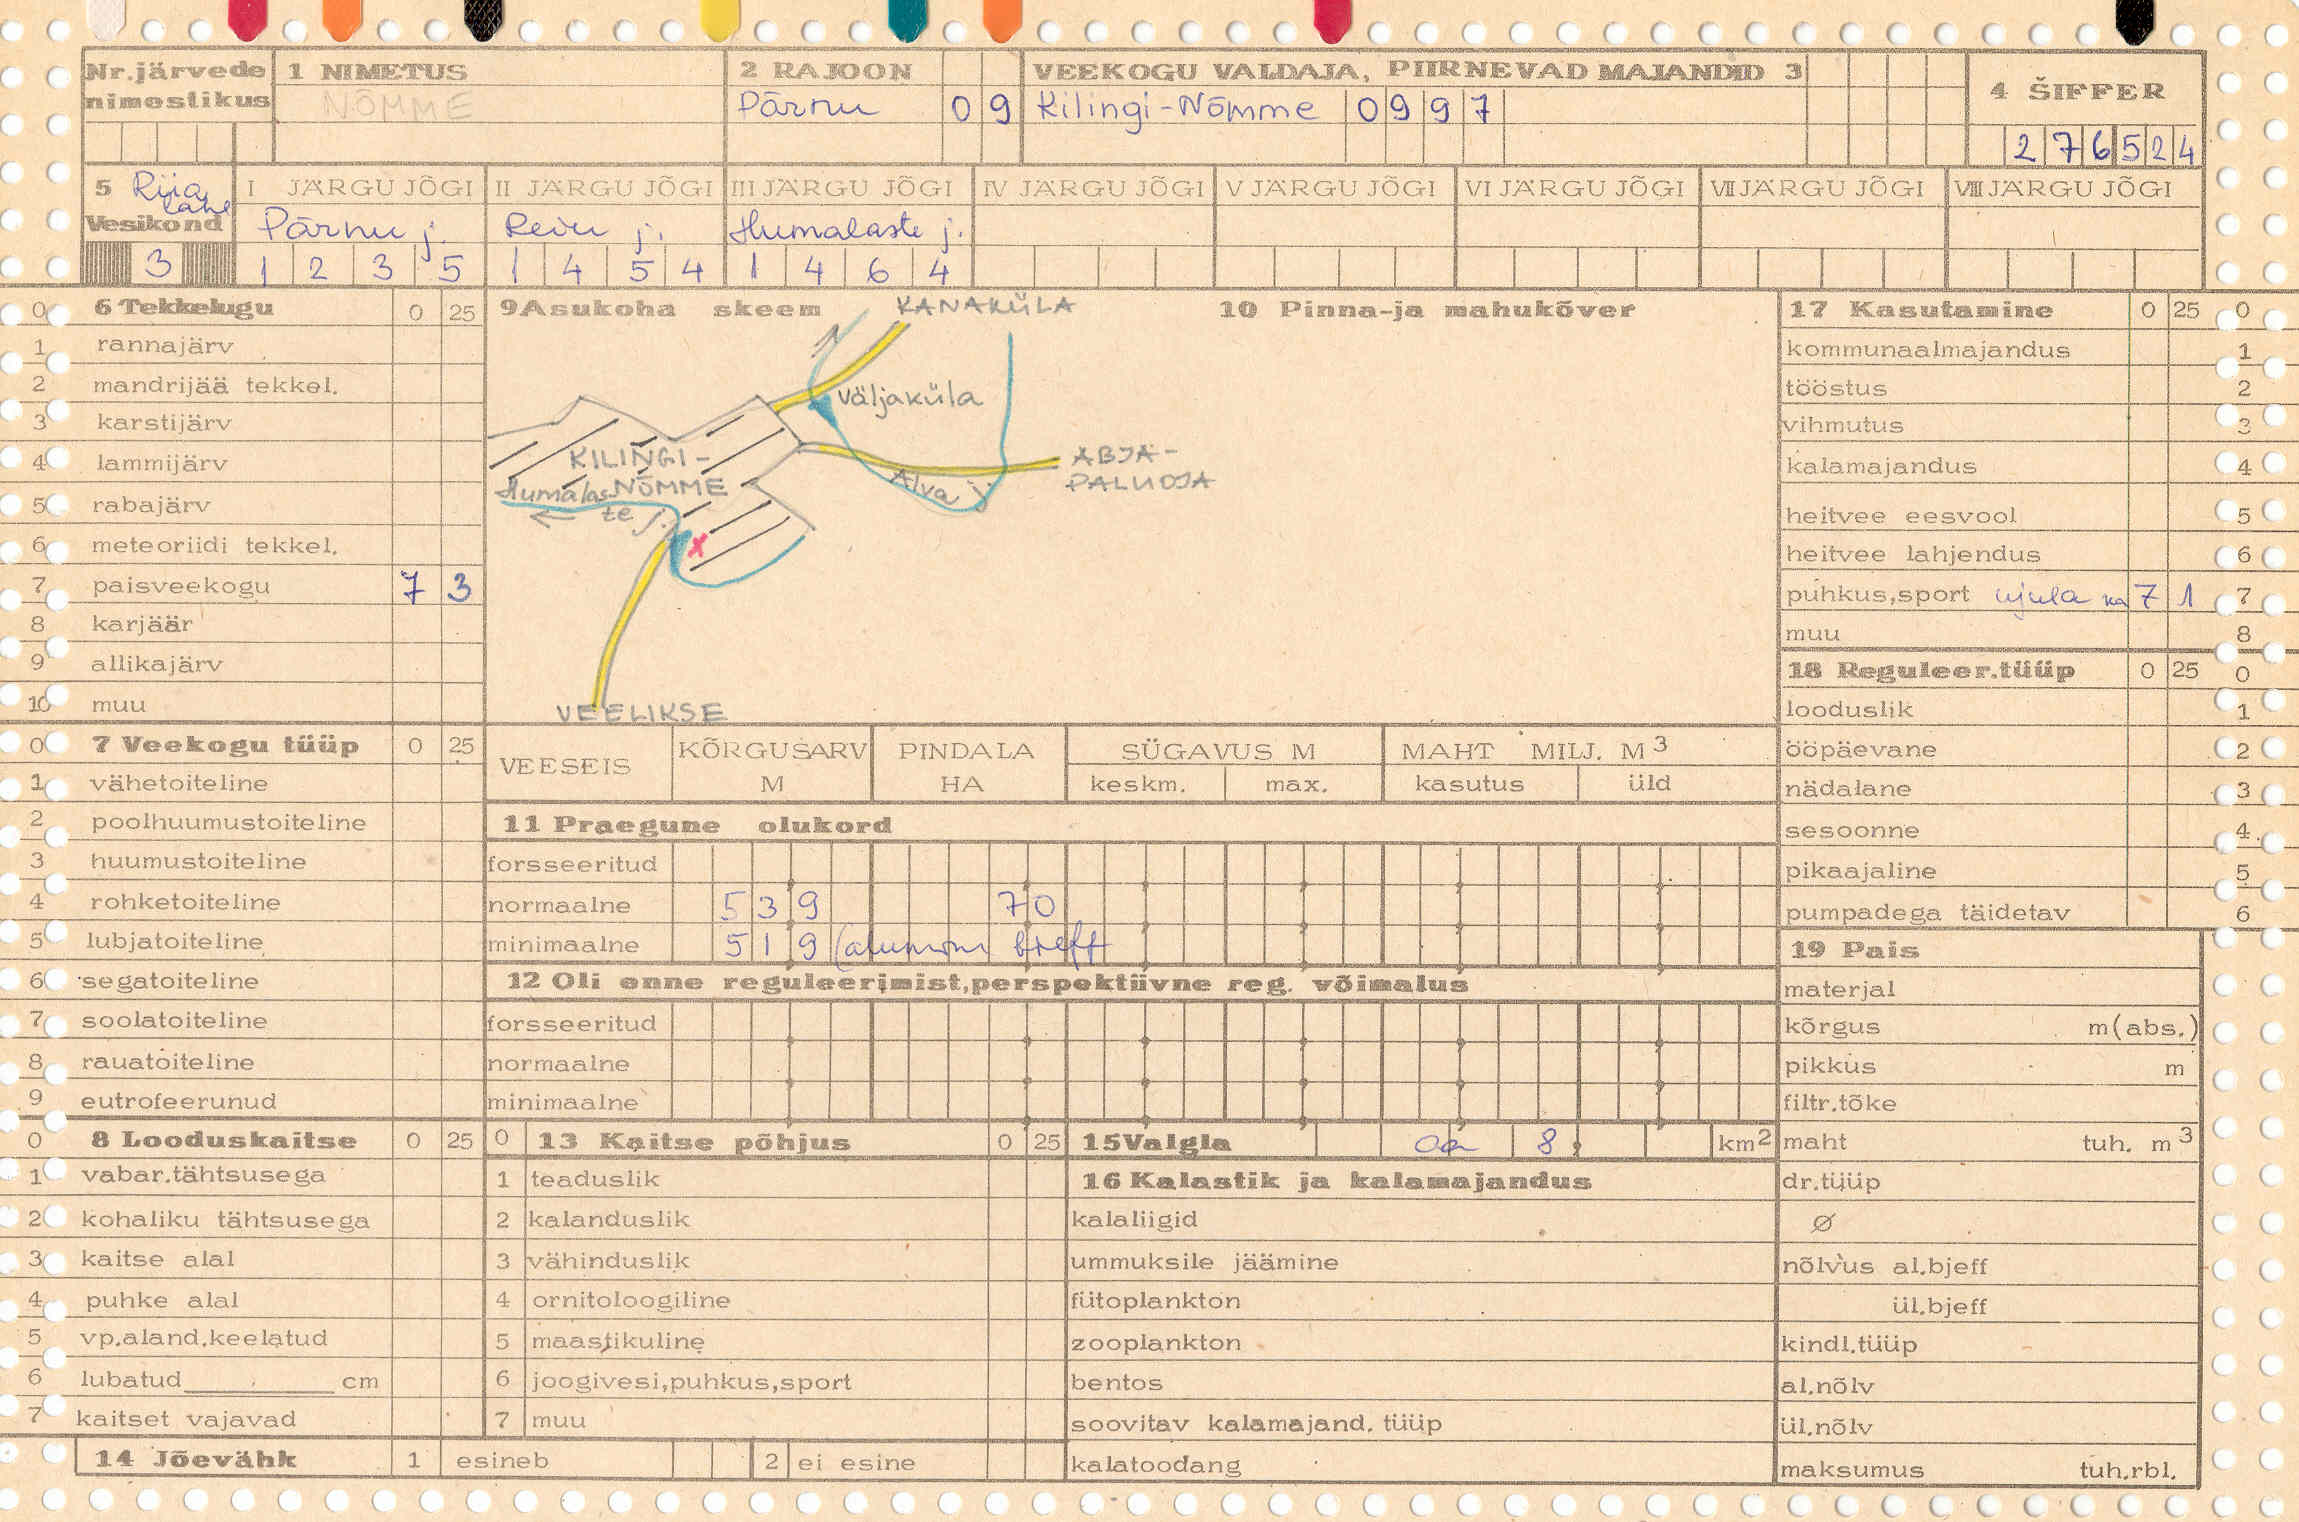 Nr.järvede nimestikus
1 NIMETUS
NÕMME
2 RAJOON
Pärnu 09
VEEKOGU VALDAJA, PIIRNEVAD MAJANDID 3
Kilingi-Nõmme 0997
4 ŠIFFER
276524
5 Riia lahe
Vesikond
3
I JÄRGU JÕGI
Pärnu j.
1235
II JÄRGU JÕGI
Reiu j.
1454
III JÄRGU JÕGI
Humalaste j.
1464
IV JÄRGU JÕGI
V JÄRGU JÕGI
VI JÄRGU JÕGI
VII JÄRGU JÕGI
VIII JÄRGU JÕGI
0 6 Tekkelugu 0 25
1 rannajärv
2 mandrijää tekkel.
3 karstijärv
4 lammijärv
5 rabajärv
6 meteoriidi tekkel.
7 paisveekogu 7 3
8 karjäär
9 allikajärv
10 muu
0 7 Veekogu tüüp 0 25
1 vähetoiteline
2 poolhuumustoiteline
3 huumustoiteline
4 rohketoiteline
5 lubjatoiteline
6 segatoiteline
7 soolatoiteline
8 rauatoiteline
9 eutrofeerunud
0 8 Looduskaitse 0 25
1 vabar.tähtsusega
2 kohaliku tähtsusega
3 kaitse alal
4 puhke alal
5 vp.aland.keelatud
6 lubatud cm
7 kaitset vajavad
14 Jõevähk 1 esineb 2 ei esine
9 Asukoha skeem
KANAKÜLA
Väljaküla
KILINGI-
NÕMME
Humalas
te j.
Alva j
ABJA-
PALUOJA
VEELIKSE
10 Pinna-ja mahukõver
VEESEIS
KÕRGUSARV M
PINDALA HA
SÜGAVUS M
keskm. max.
MAHT MILJ. M3
kasutus üld
11 Praegune olukord
forsseeritud
normaalne 539 70
minimaalne 519
12 Oli enne reguleerimist,perspektiivne reg. võimalus
forsseeritud
normaalne
minimaalne
0 13 Kaitse põhjus 0 25
1 teaduslik
2 kalanduslik
3 vähinduslik
4 ornitoloogiline
5 maastikuline
6 joogivesi,puhkus,sport
7 muu
15 Valgla 8 km2
16 Kalastik ja kalamajandus
kalaliigid
ummuksile jäämine
fütoplankton
zooplankton
bentos
soovitav kalamajand. tüüp
kalatoodang
17 Kasutamine 0 25 0
kommunaalmajandus 1
tööstus 2
vihmutus 3
kalamajandus 4
heitvee eesvool 5
heitvee lahjendus 6
puhkus,sport ujula ka 7 1 7
muu 8
18 Reguleer.tüüp 0 25 0
looduslik 1
ööpäevane 2
nädalane 3
sesoonne 4
pikaajaline 5
pumpadega täidetav 6
19 Pais
materjal
kõrgus m(abs.)
pikkus m
filtr.tõke
maht tuh. m3
dr.tüüp
Ø
nõlvus al.bjeff
ül.bjeff
kindl.tüüp
al.nõlv
ül.nõlv
maksumus tuh.rbl.